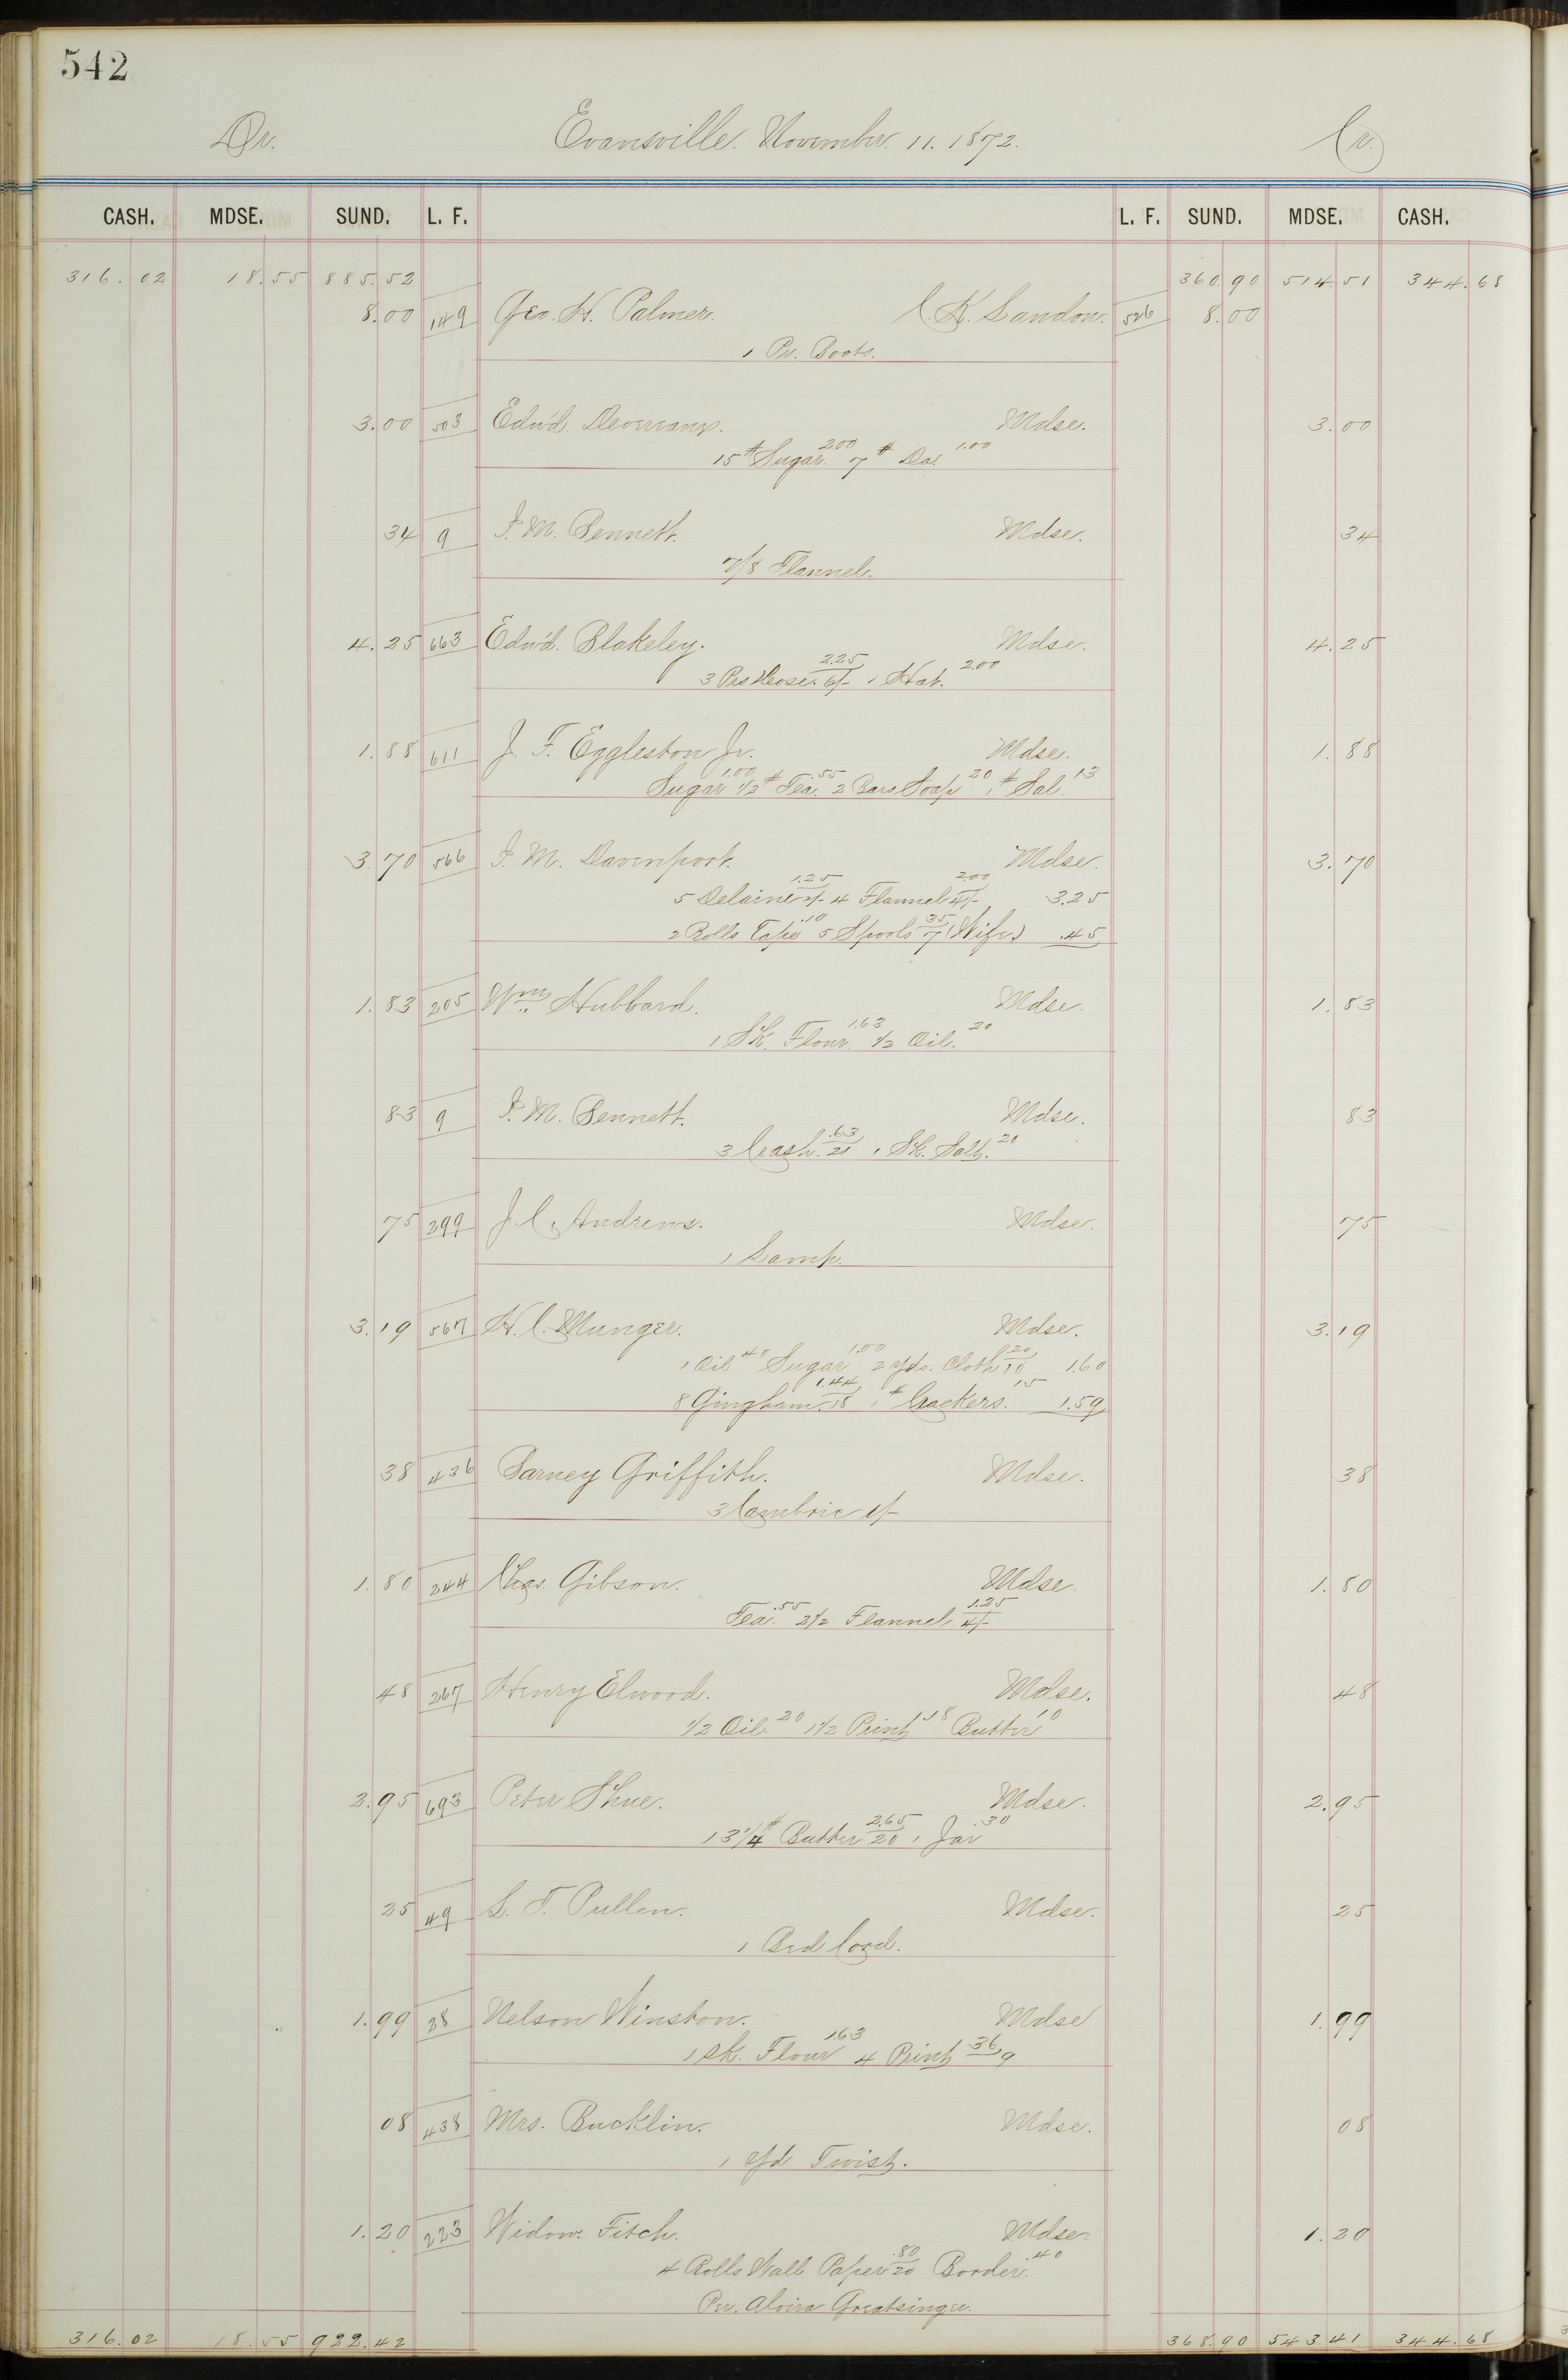 542
Dr. Evansville. November. 11. 1872. Cr.
CASH. MDSE. SUND. L. F. L. F. SUND. MDSE. CASH.
316.02 18.55 885.52 360.90 514.51 344.68
8.00 149 Geo. H. Palmer. C. K. Landon. 526 8.00
1 Pr. Boots.
3.00 503 Edw'd. Mdse. 3.00
15# Sugar. 2.00 7# Do. 1.00
34 9 I. M. Bennett. Mdse. 34
7/8 Flannel.
4.25 663 Edw'd. Blakeley. Mdse. 4.25
3 Prs Hose. 2.25 6/- 1 Hat. 2.00
1.88 611 J. F. Eggleston Jr. Mdse. 1.88
Sugar 1.00 1/2# Tea. .55 2 Bars Soap 20 1# Sal. 13
3.70 566 I. M. Davenport. Mdse. 3.70
5 Delaine 1.25 2/- 4 Flannel 2.00 4/- 3.25
2 Rolls Tape .10 5 Spools .35 7 (Wife) .45
1.83 205 Wm. Hubbard. Mdse. 1.83
1 Sk. Flour. 1.63 1/2 Oil. 20
83 9 I. M. Bennett. Mdse. 83
3 Crash. .63 21 1 Sk. Salt. 20
75 299 J. C. Andrews. Mdse. 75
1 Lamp.
3.19 567 H. C. Munger. Mdse. 3.19
1 Oil 40 Sugar 1.00 2 yds. Cloth .20 10 1.60
8 Gingham. 1.44 18 1# Crackers. 15 1.59
38 436 Barney Griffith. Mdse. 38
3 Cambric 1/-
1.80 244 Chas. Gibson. Mdse. 1.80
Tea. .55 2 1/2 Flannel. 1.25 4/-
48 267 Henry Elwood. Mdse. 48
1/2 Oil. 20 1 1/2 Print .18 Butter 10
2.95 693 Peter Shue. Mdse. 2.95
13 1/4# Butter 2.65 20 1 Jar .30
25 49 L. T. Pullen. Mdse. 25
1 Bed Cord.
1.99 28 Nelson Winston. Mdse 1.99
1 Sk. Flour 1.63 4 Print .36 9
08 438 Mrs. Bucklin. Mdse. 08
1 yd Twist.
1.20 223 Widow. Fitch. Mdse. 1.20
4 Rolls Wall Paper .80 20 Border. .40
Per. Alvira Greatsinger.
316.02 18.55 922.42 368.90 543.41 344.68